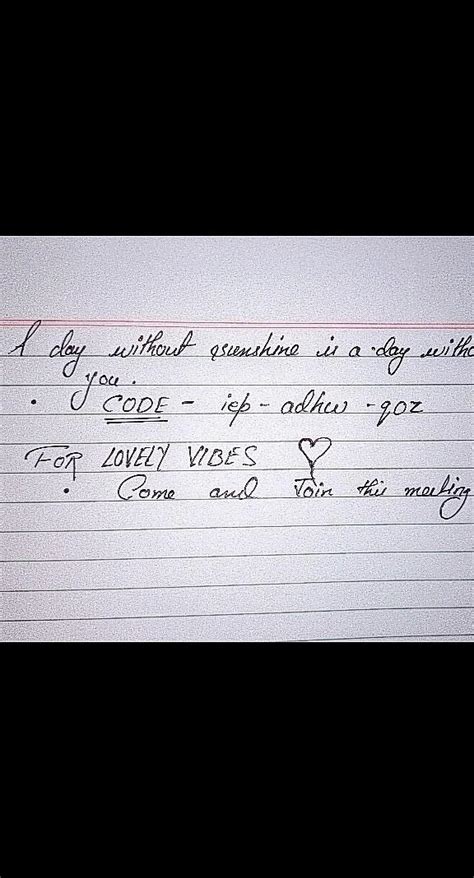 A day without sunshine is a day witho
you.
• CODE - iep - adhw - qoz
FOR LOVELY VIBES ♡
• Come and Join this meeting